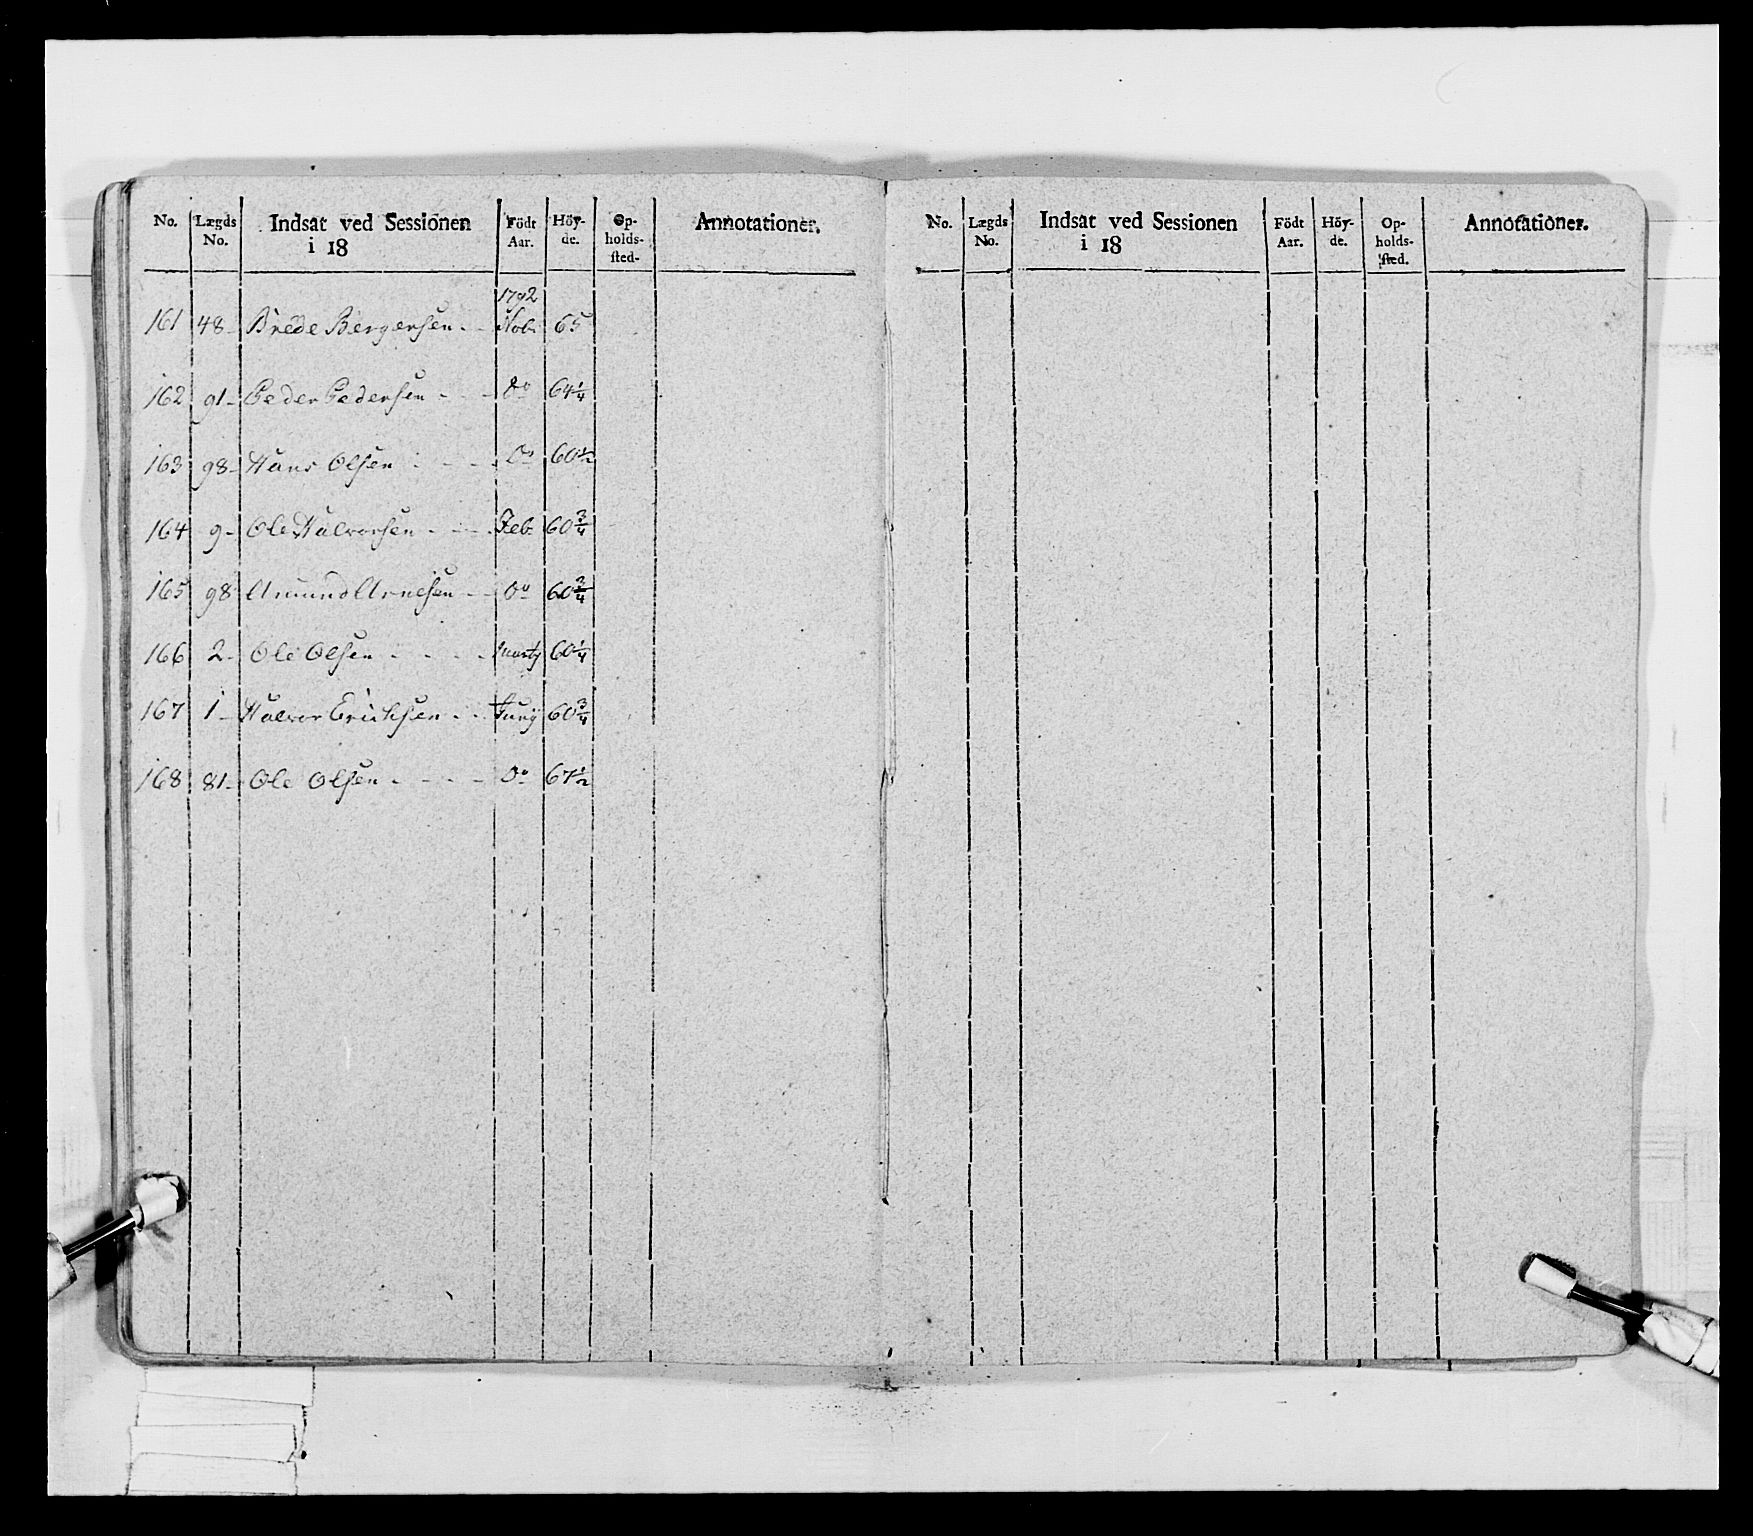 No. Lægds No. Indsat ved Sessionen i 18 Födt Aar. Höy-de. Op-holds-sted- Annotationer.
1792
161 48- Brede Bergersen - - Nob: 65
162 91- Peder Pedersen - - - do 64¼
163 98- Hans Olsen - - - - Do 60½
164 9- Ole Halvorsen - - - Feb: 60¾
165 98 Amund Arnesen - - Do 60¾
166 2- Ole Olsen - - - - Marty 60¼
167 1- Halvor Erichsen - - Juny 60¾
168 81- Ole Olsen - - - - Do 67½
No. Lægds No. Indsat ved Sessionen i 18 Födt Aar. Höy-de. Op-holds-sted. Annotationer.